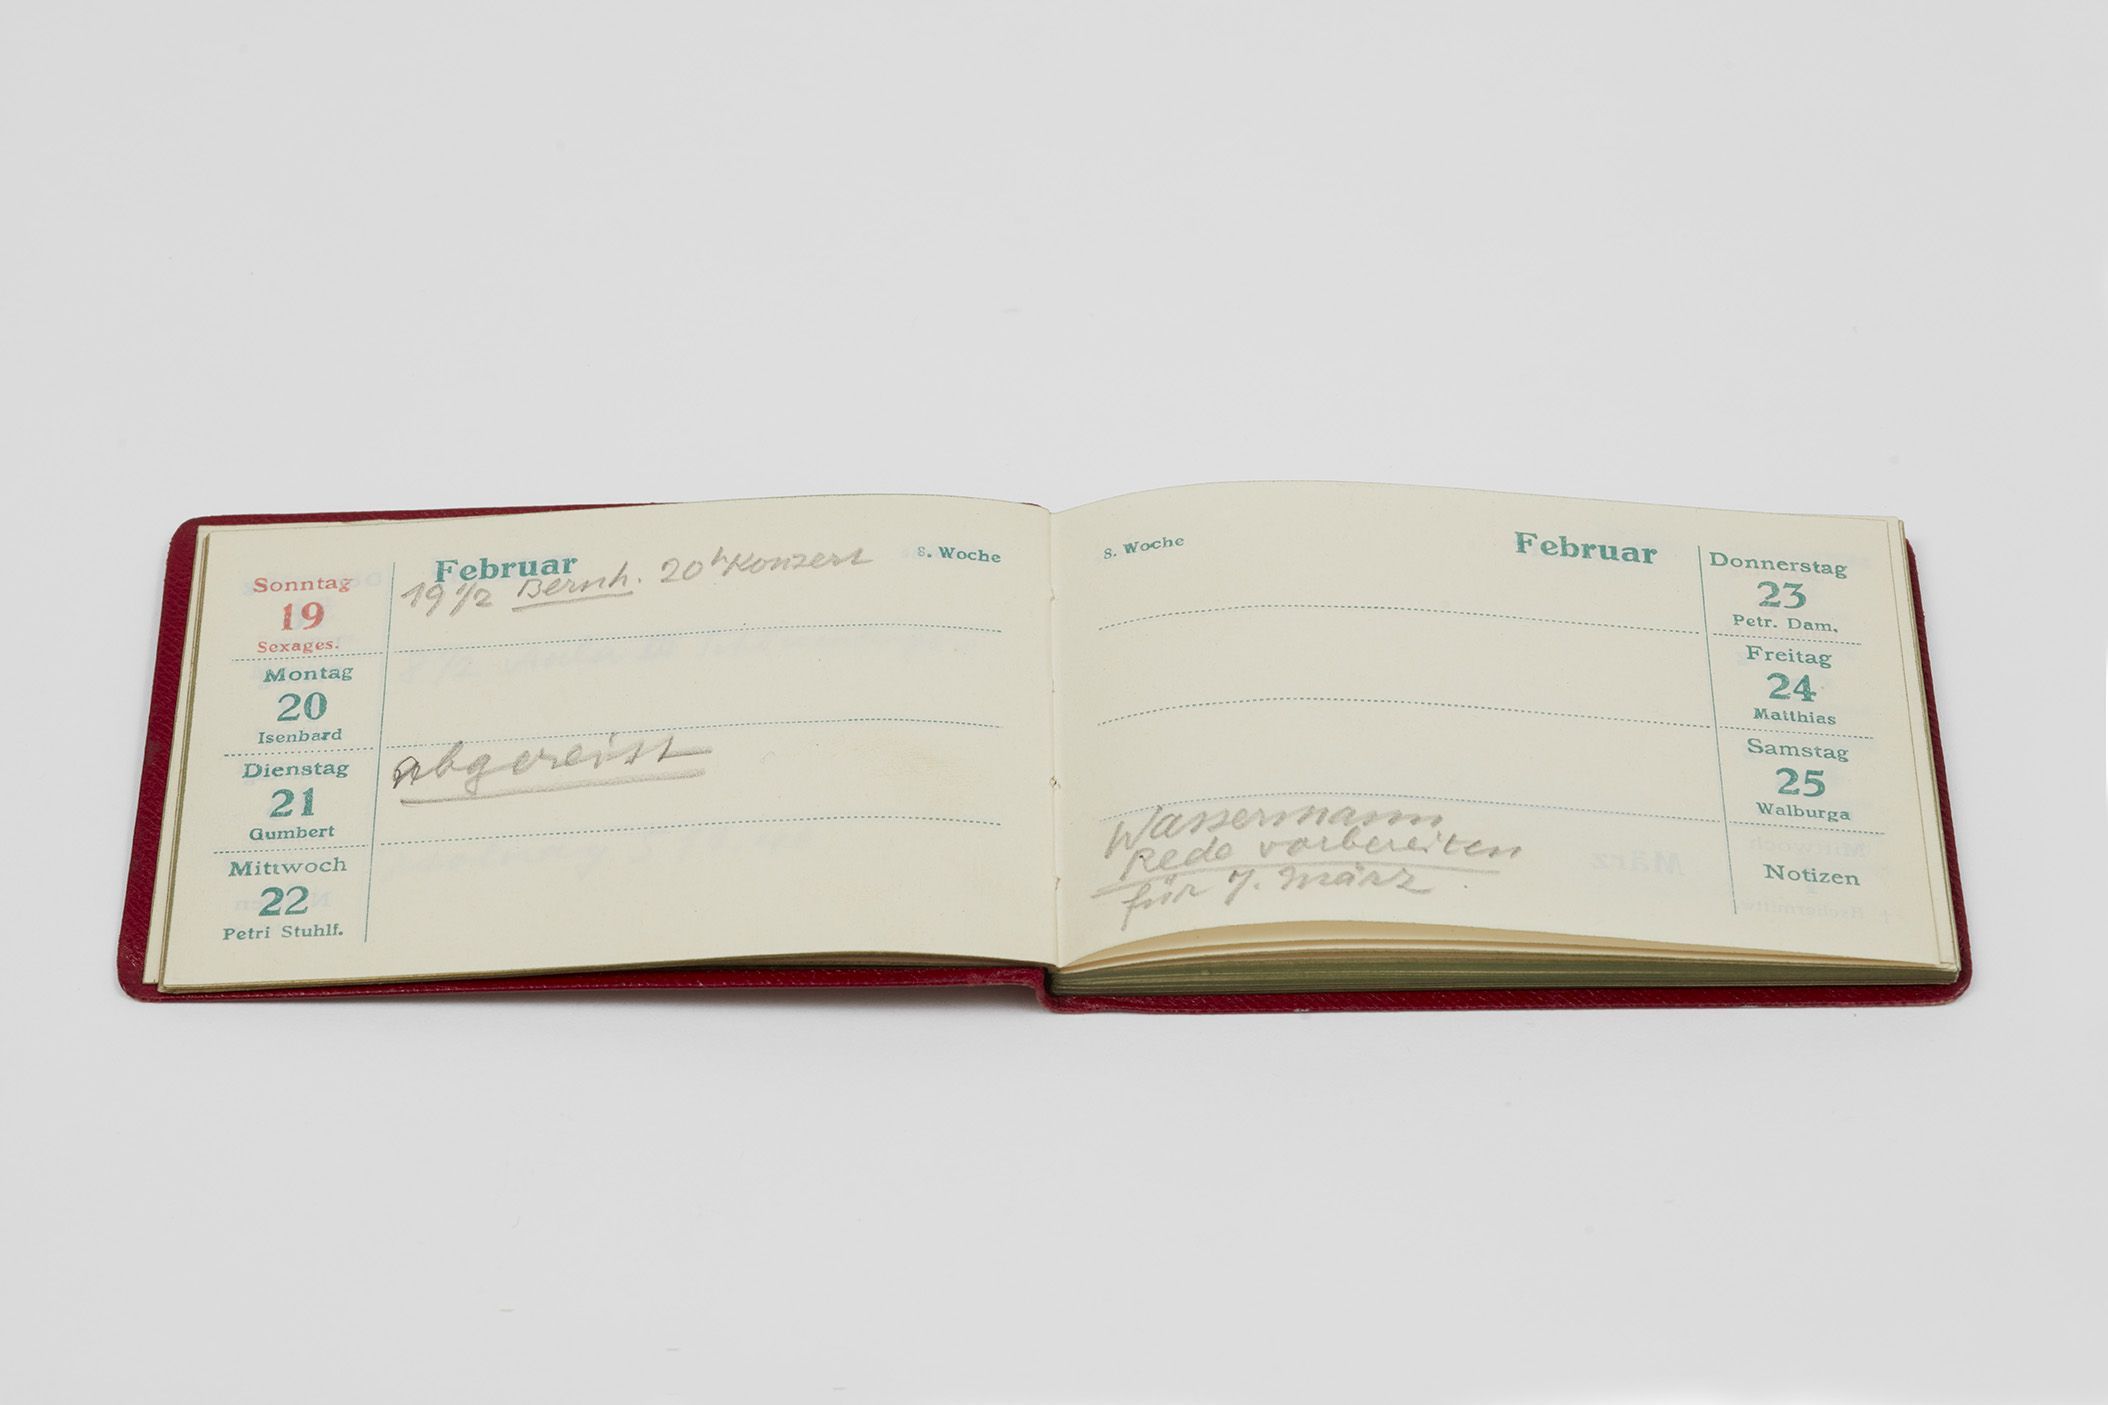 Februar
8. Woche
Sonntag
19
Sexages.
19 1/2 Bernh. 20h Konzert
Montag
20
Isenbard
Dienstag
21
Gumbert
abgereist
Mittwoch
22
Petri Stuhlf.
8. Woche
Februar
Donnerstag
23
Petr. Dam.
Freitag
24
Matthias
Samstag
25
Walburga
Notizen
Wassermann
Rede vorbereiten
für 7. März